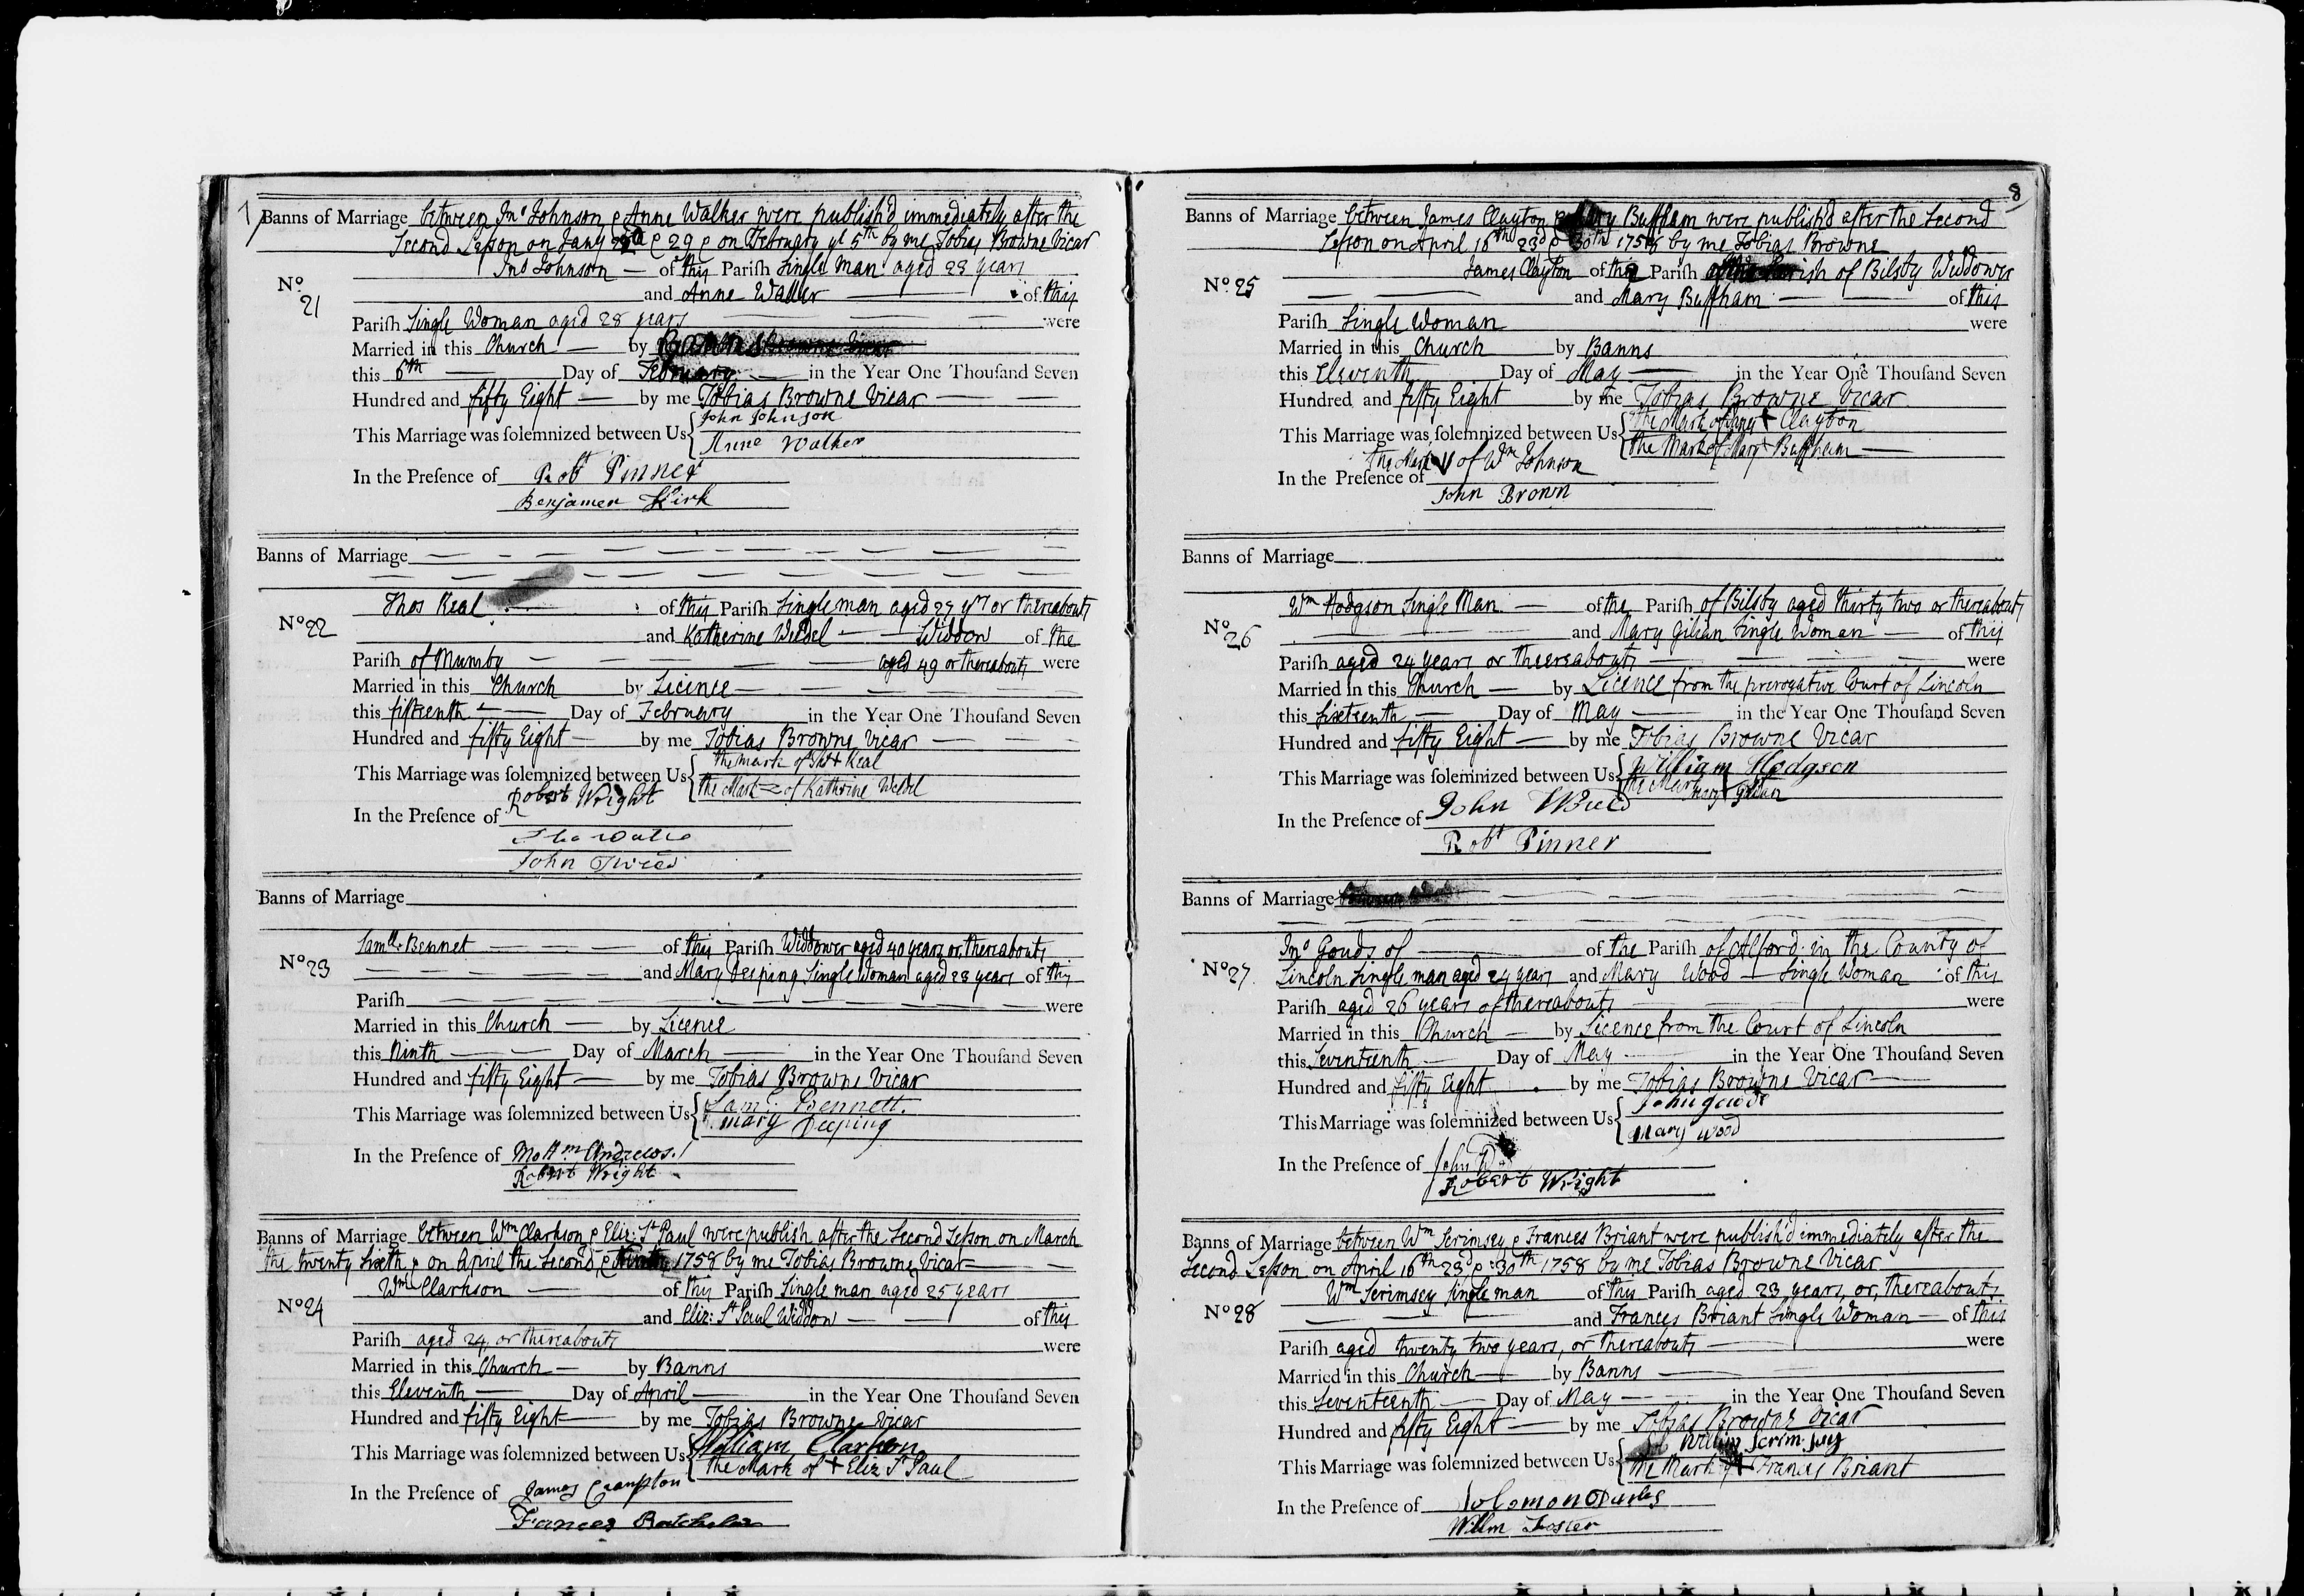 7
Banns of Marriage between Jno Johnson & Anne Walker were publish'd immediately after the
Second Lesson on Jany 22d & 29 & on February ye 5th by me Tobias Browne Vicar
No 21
Jno Johnson — of this Parish Single Man aged 23 years
and Anne Walker — of this
Parish Single Woman aged 28 years — were
Married in this Church — by Banns
this 6th — Day of February — in the Year One Thousand Seven
Hundred and fifty Eight — by me Tobias Browne Vicar —
This Marriage was solemnized between Us { John Johnson
Anne Walker
In the Presence of Robt Pinner
Benjamen Kirk
Banns of Marriage
No 22
Thos Keal of this Parish Single man aged 27 yrs or thereabouts
and Katherine Weldel — Widdow of the
Parish of Mumby — aged 49 or thereabouts were
Married in this Church by Licence —
this fifteenth — Day of February in the Year One Thousand Seven
Hundred and fifty Eight — by me Tobias Browne Vicar —
This Marriage was solemnized between Us { the mark of Thos + Keal
the Mark of Kathrine Weldel
In the Presence of Robert Wright
John
Banns of Marriage
No 23
Samll. Bennet — of this Parish Widdower aged 40 years or thereabouts
and Mary Deeping Single Woman aged 23 years of this
Parish — were
Married in this Church — by Licence
this Ninth — Day of March — in the Year One Thousand Seven
Hundred and fifty Eight — by me Tobias Browne Vicar
This Marriage was solemnized between Us { Saml. Bennett.
Mary Deeping
In the Presence of Andrews.
Robert Wright
Banns of Marriage between Wm Clarkson & Eliz: St Paul were publish after the Second Lesson on March
the twenty Sixth & on April the Second & 1758 by me Tobias Browne Vicar —
No 24
Wm Clarkson — of this Parish Single man aged 25 years
and Eliz: St Paul Widdow — of this
Parish aged 24, or thereabouts were
Married in this Church — by Banns
this Eleventh — Day of April — in the Year One Thousand Seven
Hundred and fifty Eight — by me Tobias Browne Vicar
This Marriage was solemnized between Us { William Clarkson
the Mark of + Eliz St Paul
In the Presence of James Crampton
Frances Batchelor
8
Banns of Marriage between James Clayton Buffham were publish'd after the Second
Lesson on April 16th 23d & 30th 1758 by me Tobias Browne
No 25
James Clayton of the Parish of Bilsby Widdower
and Mary Buffham — of this
Parish Single Woman were
Married in this Church by Banns
this Eleventh Day of May — in the Year One Thousand Seven
Hundred and fifty Eight by me Tobias Browne Vicar
This Marriage was solemnized between Us { the Mark of + Clayton
the Mark of Mary + Buffham —
In the Presence of The Mark V of Wm Johnson
John Brown
Banns of Marriage
No 26
Wm Hodgson Single Man — of the Parish of Bilsby aged thirty two or thereabouts
and Mary Gilian Single Woman — of this
Parish aged 24 years or theereabouts — were
Married in this Church — by Licence from the prerogative Court of Lincoln
this Sixteenth — Day of May — in the Year One Thousand Seven
Hundred and fifty Eight — by me Tobias Browne Vicar
This Marriage was solemnized between Us { William Hodgson
the Mark Mary + Gilian
In the Presence of John
Robt Pinner
Banns of Marriage
No 27
Jno Gouds of — of the Parish of Alford in the County of
Lincoln Single man aged 24 years and Mary Wood — Single Woman of this
Parish aged 26 years of thereabouts were
Married in this Church — by Licence from the Court of Lincoln
this Seventeenth — Day of May in the Year One Thousand Seven
Hundred and fifty Eight by me Tobias Browne Vicar —
This Marriage was solemnized between Us { John
Mary Wood
In the Presence of John
Robert Wright
Banns of Marriage between Wm Scrimsey & Frances Briant were publish'd immediately after the
Second Lesson on April 16th 23d & 30th 1758 by me Tobias Browne Vicar
No 28
Wm Scrimsey Single man of this Parish aged 23 years, or, thereabouts
and Frances Briant Single Woman — of this
Parish aged twenty two years, or thereabouts — were
Married in this Church — by Banns —
this Seventeenth — Day of May — in the Year One Thousand Seven
Hundred and fifty Eight — by me Tobias Browne Vicar
This Marriage was solemnized between Us { Willim Scrimsey
the Mark of + Frances Briant
In the Presence of Solomon
Willm Foster